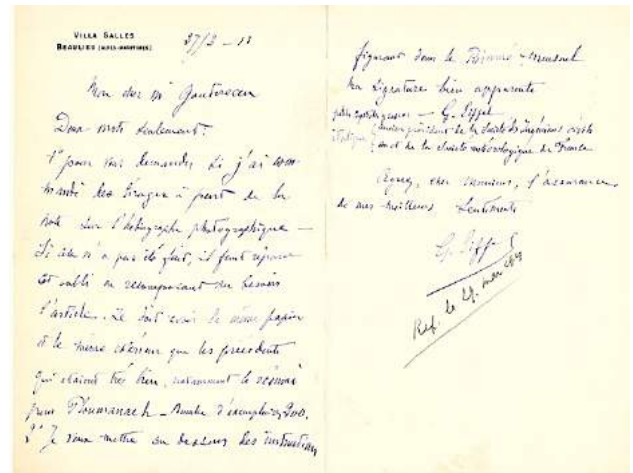 VILLA SALLES
BEAULIEU (ALPES-MARITIMES)
27/3 - 11
Mon cher Mr Gautereau
Deux mots seulement:
1° pour vous demander si j'ai com-
mandé des tirages à part de la
note sur l'héliographe photographique —
Si cela n'a pas été fait, il faut réparer
cet oubli en recomposant au besoin
l'article. Ce doit avoir le même papier
et le même
que les précédents
qui étaient très bien, notamment le résumé
pour Ploumanach - Nombre d'exemplaires 300.
2° Je veux mettre au dessous des instructions
figurant dans le Résumé mensuel
ma signature bien apparente
G. Eiffel
ancien président de la Société des Ingénieurs civils
et de la Société météorologique de France
Agréez, cher Monsieur, l'assurance
de mes meilleurs sentiments
G. Eiffel
Rép. le 29 mars